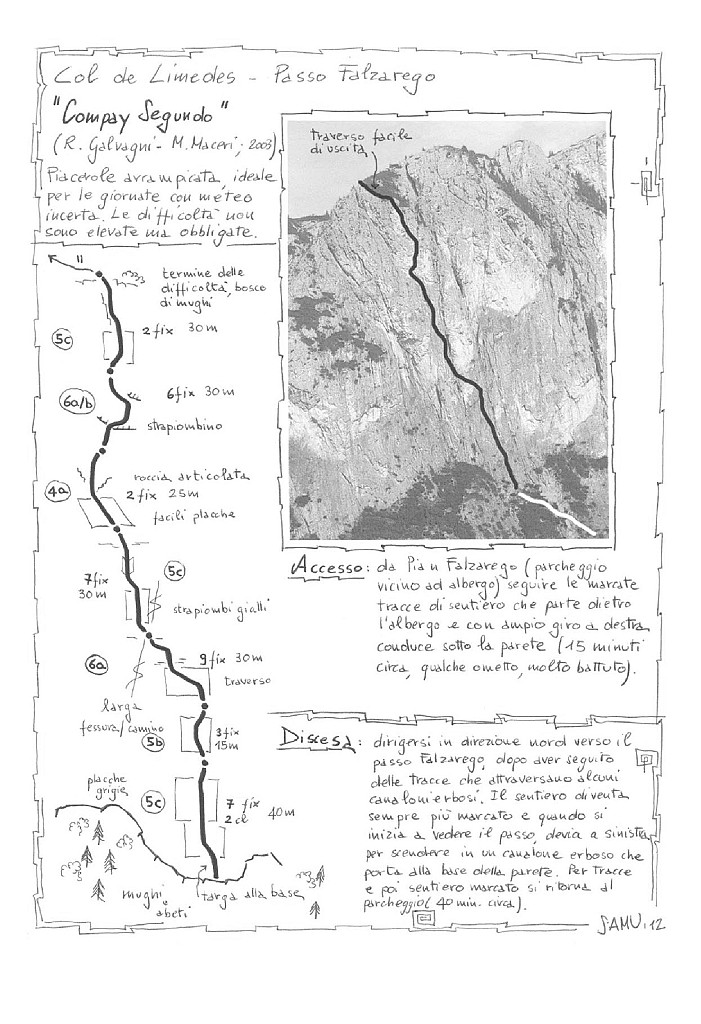 Col de Limedes - Passo Falzarego
"Compay Segundo"
(R. Galvagni - M. Maceri; 2003)
Piacevole arrampicata, ideale
per le giornate con meteo
incerta. Le difficoltà non
sono elevate ma obbligate.
traverso facile
di uscita
11
termine delle
difficoltà, bosco
di mughi
5c
2 fix 30m
6a/b
6fix 30m
strapiombino
roccia articolata
4a
2 fix 25m
facili placche
5c
7fix
30m
strapiombi gialli
6a
9 fix 30m
traverso
larga
fessura/camino
5b
3fix
15m
placche
grigie
5c
7 fix
2 cl
40m
mughi
abeti
targa alla base
Accesso: da Pian Falzarego (parcheggio
vicino ad albergo) seguire le marcate
tracce di sentiero che parte dietro
l'albergo e con ampio giro a destra
conduce sotto la parete (15 minuti
circa, qualche ometto, molto battuto).
Discesa: dirigersi in direzione nord verso il
passo Falzarego, dopo aver seguito
delle tracce che attraversano alcuni
canaloni erbosi. Il sentiero diventa
sempre più marcato e quando si
inizia a vedere il passo, devia a sinistra
per scendere in un canalone erboso che
porta alla base della parete. Per tracce
e poi sentiero marcato si ritorna al
parcheggio (40 min. circa).
SAMU.12